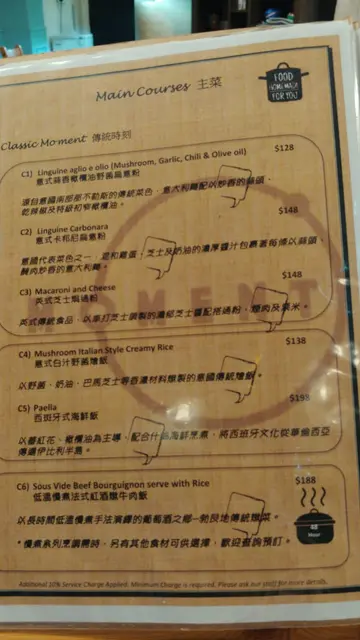 Main Courses 主菜
FOOD
HOME MADE
FOR YOU
Classic Mo'ment 傳統時刻
C1) Linguine aglio e olio (Mushroom, Garlic, Chili & Olive oil) $128
意式蒜香橄欖油野菌扁意粉
源自意國南部那不勒斯的傳統菜色，意大利麵配以炒香的蒜頭、
乾辣椒及特級初榨橄欖油。
C2) Linguine Carbonara $148
意式卡邦尼扁意粉
意國代表菜色之一，混和雞蛋，芝士及奶油的濃厚醬汁包裹著每條以蒜頭、
醃肉炒香的意大利麵。
C3) Macaroni and Cheese $148
英式芝士焗通粉
英式傳統食品，以車打芝士調製的濃郁芝士醬配搭通粉、煙肉及粟米。
MOMENT
C4) Mushroom Italian Style Creamy Rice $138
意式白汁野菌燴飯
以野菌、奶油、巴馬芝士等香濃材料燉製的意國傳統燴飯。
C5) Paella $198
西班牙式海鮮飯
以番紅花、橄欖油為主導，配合什錦海鮮烹煮，將西班牙文化從華倫西亞
傳遍伊比利半島。
C6) Sous Vide Beef Bourguignon serve with Rice $188
低溫慢煮法式紅酒燉牛肉飯
以長時間低溫慢煮手法演繹的葡萄酒之鄉—勃艮地傳統燉菜。
*慢煮系列烹調需時，另有其他食材可供選擇，歡迎查詢預訂。
48
Hour
Additional 10% Service Charge Applied. Minimum Charge is required. Please ask our staff for more details.